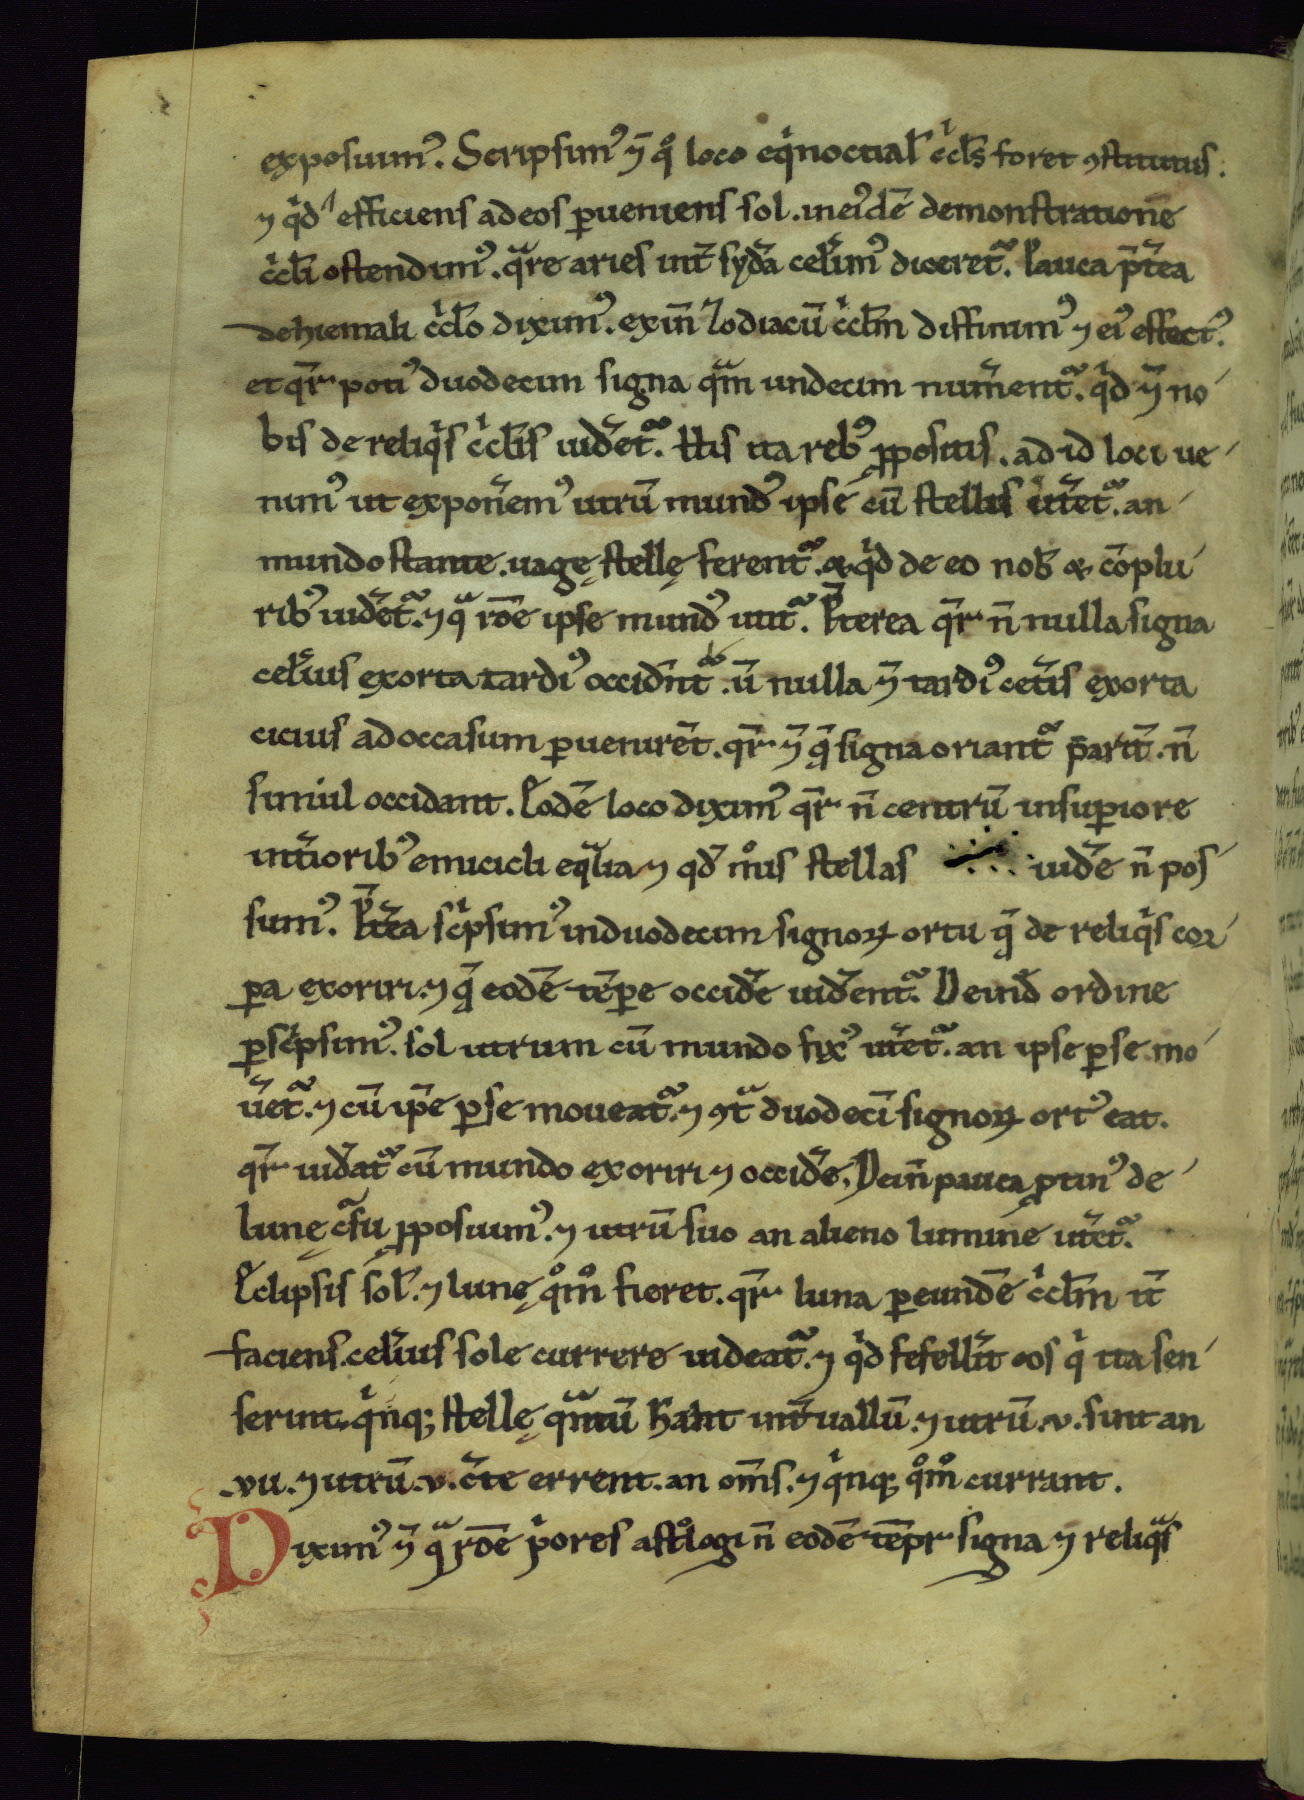 exposuimꝰ. Scripsimꝰ ⁊̄ qͦ loco eqͥnoctial̄ cͥcl̄s foret ꝯstitutus.
⁊ qͥd efficiens ad eos ꝑueniens sol. in eiꝰdē demonstratione
cͥcl̄i ostendimꝰ. qᷓre aries int̄ syd̄a cel̄imꝰ diceret᷑. Pauca p̄t̄ea
de hiemali cͥcl̄o diximꝰ. exin̄ zodiacū cͥcl̄m diffinimꝰ ⁊ eiꝰ effectꝰ.
et qr̄ potiꝰ duodecim signa qᷓm undecim num̄ent᷑. qͥd ⁊̄ no
bis de reliqͥs cͥcl̄is uid̄et᷑. His ita rebꝰ ꝓpositis. ad id loci ue
nimꝰ ut expon̄emꝰ utrū mundꝰ ipse cū stellis ūtet᷑. an
mundo stante. uagę stellę ferent᷑. & qͥd de eo nob̄ & cōplu
ribꝰ uid̄et᷑. ⁊ qᷓ rōe ipse mundꝰ utit᷑. P̄terea qr̄ n̄ nulla signa
cel̄ius exorta tardiꝰ occid̄nt᷑. ū nulla ⁊̄ tardiꝰ cet̄is exorta
cicius ad occasum ꝑuenirēt. qr̄ ⁊̄ q̄ signa oriant᷑ parit̄. n̄
simul occidant. Eodē loco diximꝰ qr̄ n̄ centrū in suꝑiore
int̄ioribꝰ emicicli eqᷓlia ⁊ qd̄ mͦis stellas uid̄e n̄ pos
sumꝰ. P̄t̄ea scͥpsimꝰ in duodecim signoꝝ ortu q̄ de reliqͥs cor
ꝑa exoriri. ⁊ q̄ eodē tēꝑe occid̄e uid̄ent᷑. Deind̄ ordine
ꝑscͥpsimꝰ. sol utrum cū mundo fixꝰ ūtet᷑. an ipse ꝑ se mo
ūet᷑. ⁊ cū ip̄e ꝑ se moueat᷑. ⁊ ꝯtᷓ duodecī signoꝝ ortꝰ eat.
qr̄ uid̄at᷑ cū mundo exoriri ⁊ occid̄e. Dein̄ pauca ꝓtinꝰ de
lunę cᷓsu ꝓposuimꝰ. ⁊ utrū suo an alieno lumine ūtet᷑.
Eclipsis sol̄. ⁊ lunę qͦmͦ fieret. qr̄ luna ꝑ eundē cͥcl̄m it̄
faciens. cel̄ius sole currere uideat᷑. ⁊ qͥd fefell̄it eos qͥ ita sen
serint. qͥnq; stellę qᷓntū hab̄nt int̄uallū. ⁊ utrū .v. sint an
.vii. ⁊ utrū .v. c̄te errent. an om̄s. ⁊ qͥnq; qͦmͦ currant.
Diximꝰ ⁊̄ qᷓ rōe pͥores astͦlogi n̄ eodē tēpr̄ signa ⁊ reliqᷓs